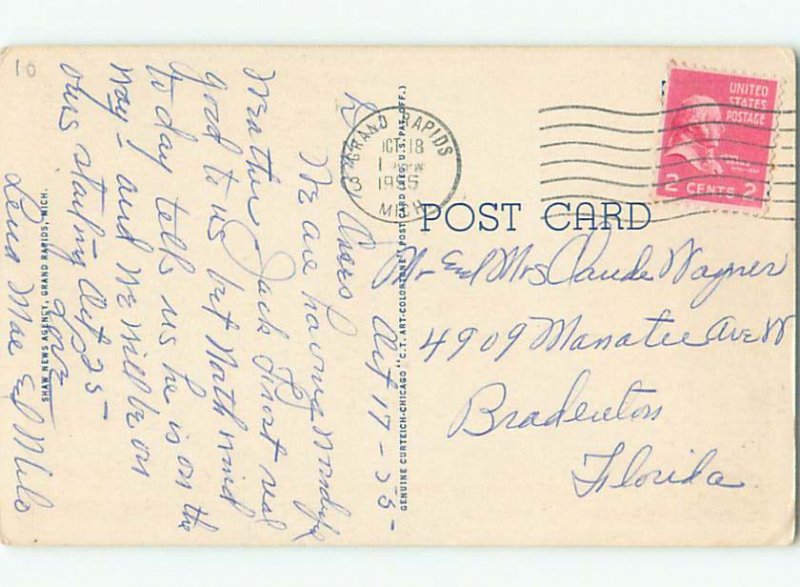 10
Oct 17 - 55 -
Dears
We are having wonderful
weather Jack Frost real
good to us but North wind
to day tells us he is on the
way - and we will be on
ours starting Oct 25 -
Love
Lena Mae and Milo
SHAW NEWS AGENCY, GRAND RAPIDS, MICH.
GENUINE CURTEICH-CHICAGO "C.T. ART-COLORTONE" POST CARD (REG. U.S. PAT. OFF.)
GRAND RAPIDS
OCT 18
1 PM
1955
MICH
UNITED
STATES
POSTAGE
2 CENTS 2
POST CARD
Mr and Mrs Claude Wagner
4909 Manatee Ave W
Bradenton
Florida